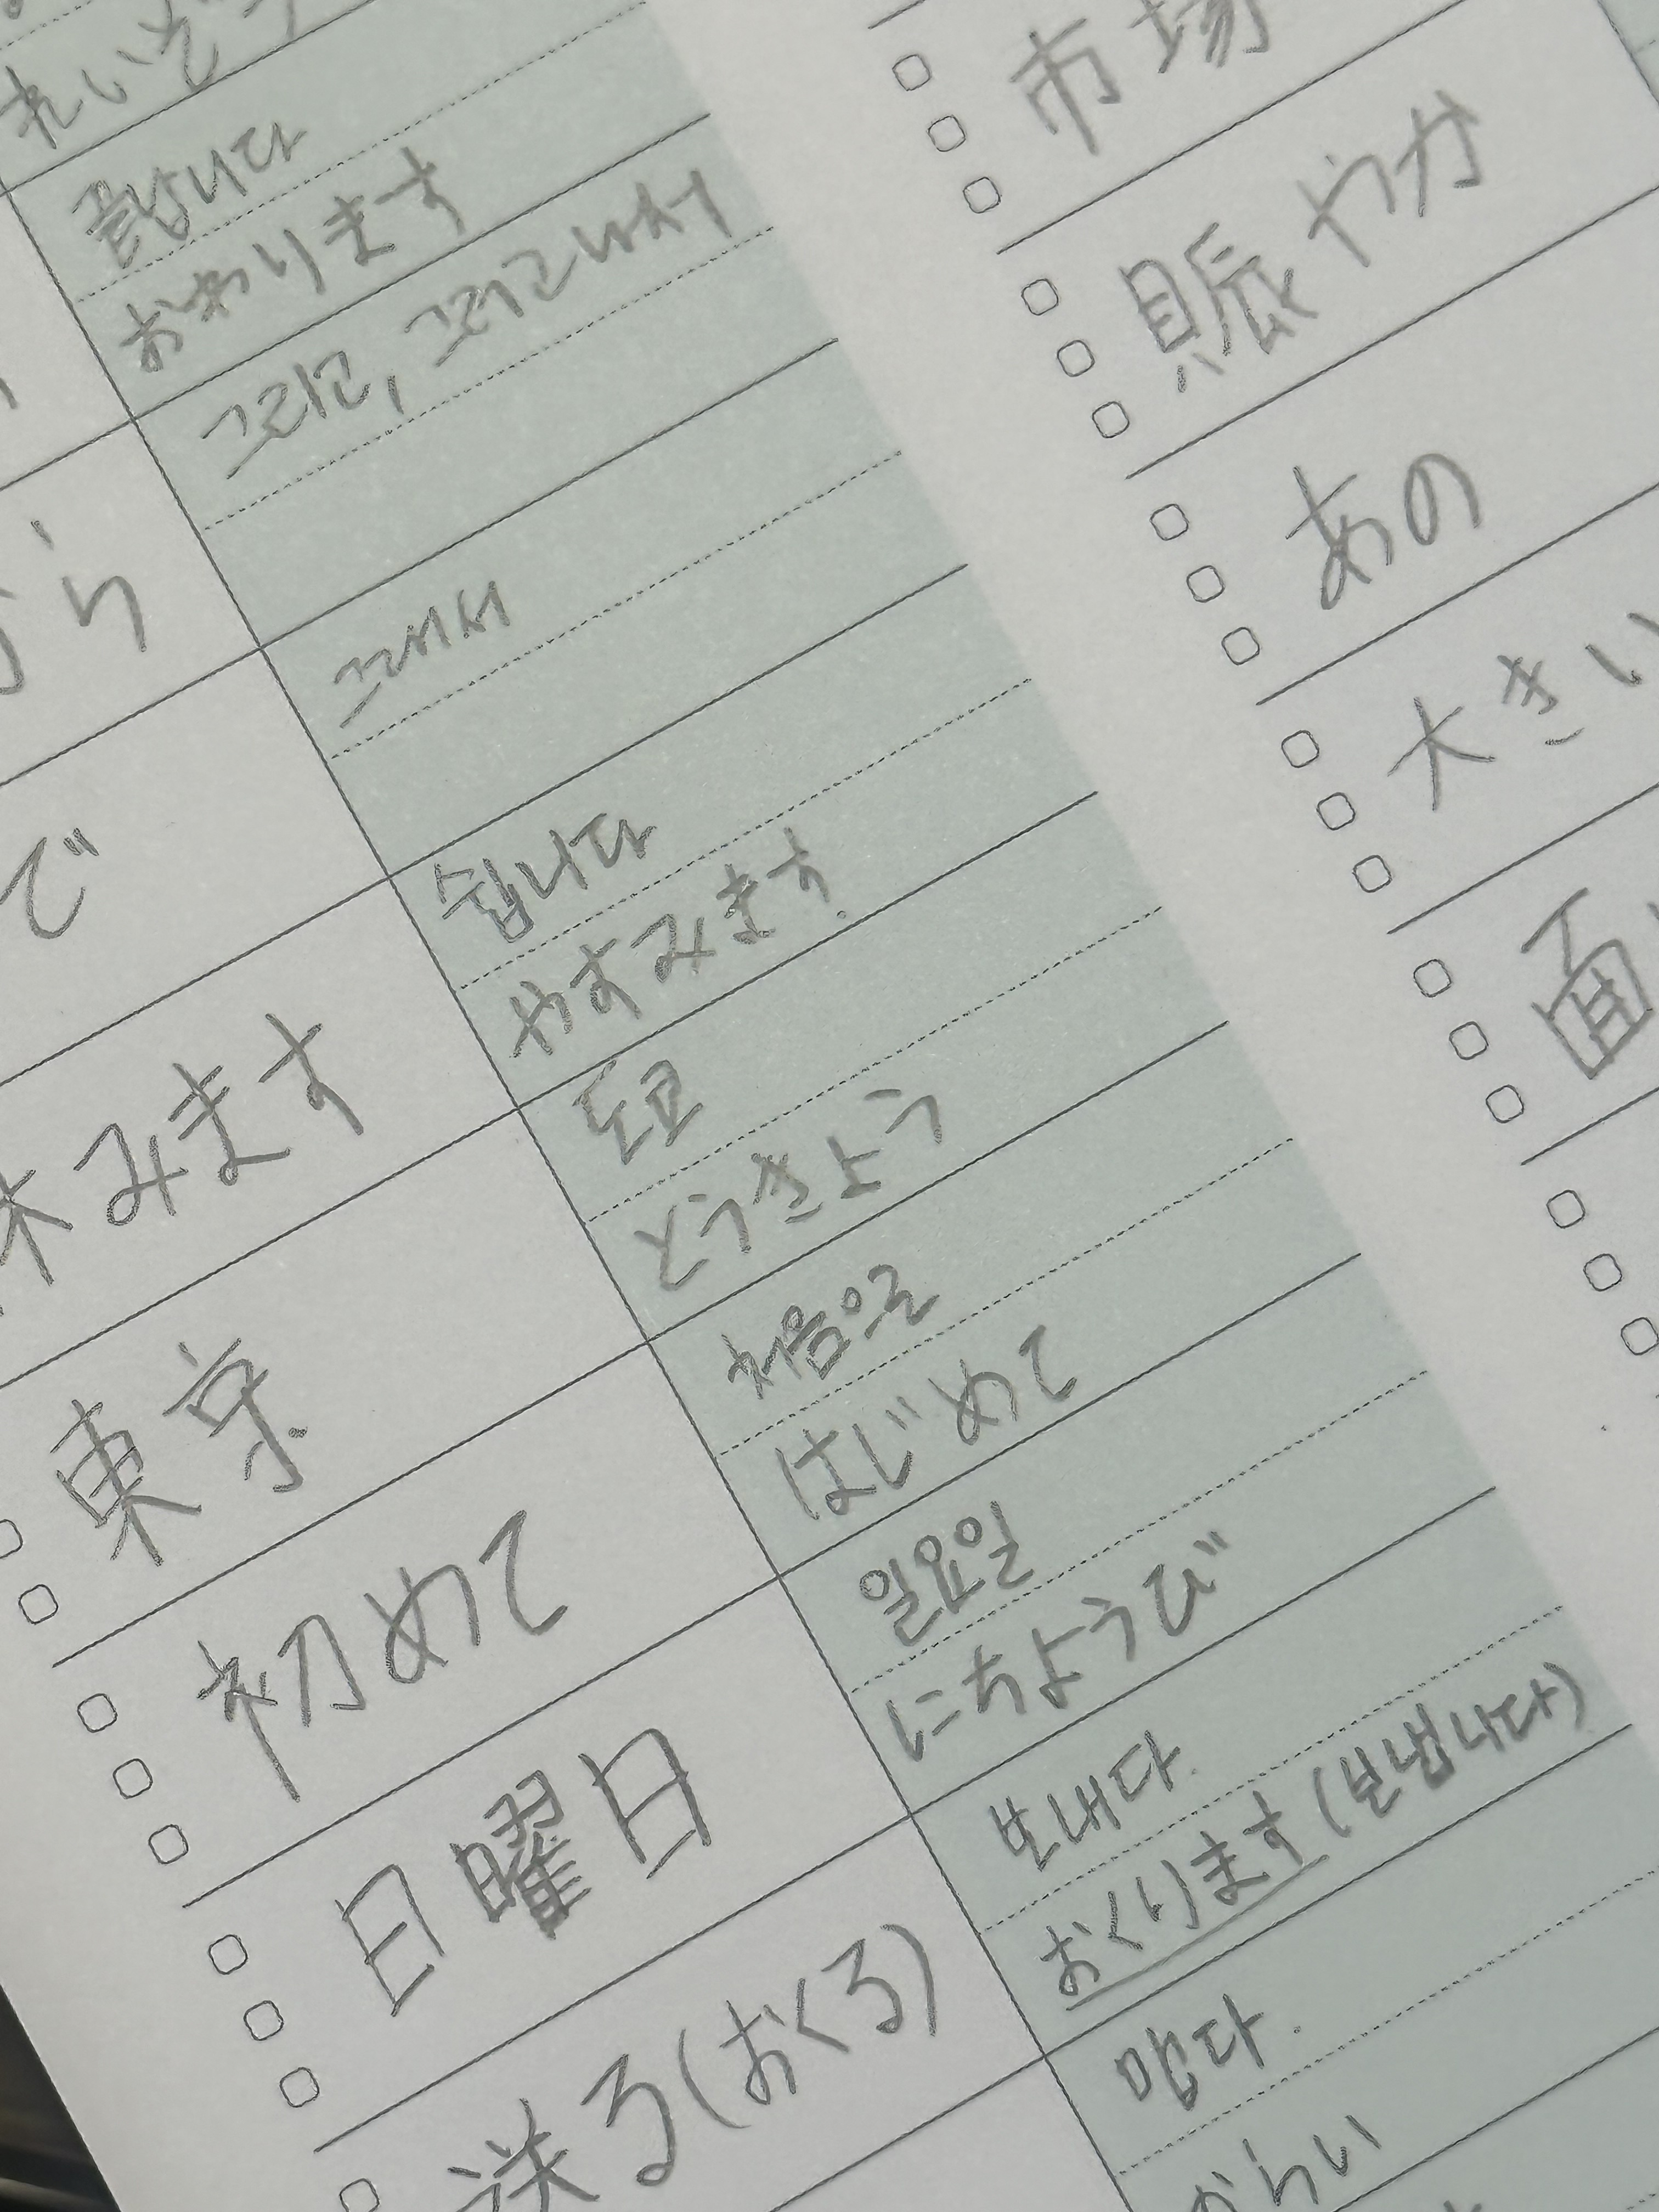 끝납니다
おわります
그리고, 그리고나서
ら
그래서
で
쉽니다
やすみます.
休みます
도쿄
とうきょう
東京
처음으로
はじめて
初めて
일요일
にちようび
日曜日
보내다.
おくります (보냅니다)
送る(おくる)
맵다.
からい
市場
賑やか
あの
大きい
面